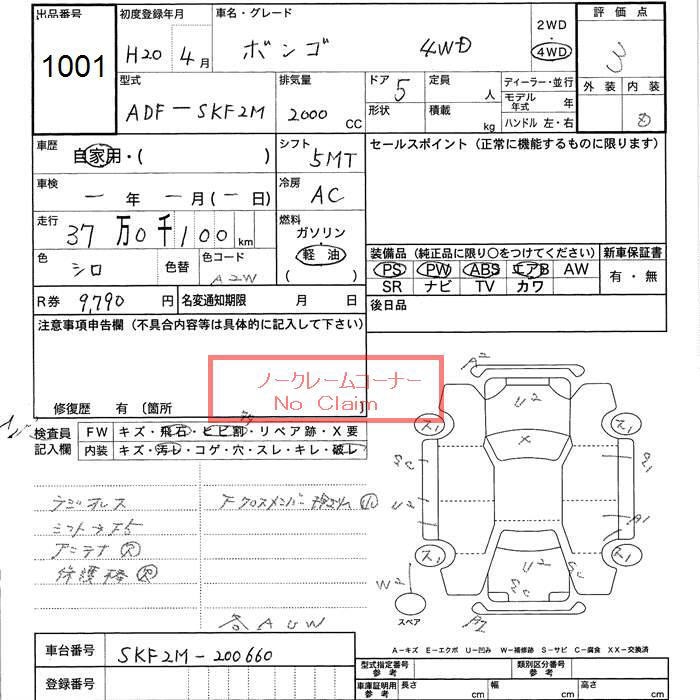 出品番号
1001
初度登録年月
H20 4月
車名・グレード
ボンゴ 4WD
2WD
4WD
評価点
3
外装 内装
D
型式
ADF-SKF2M
排気量
2000 CC
ドア
5
形状
定員
人
積載
kg
ディーラー・並行
モデル年式 年
ハンドル 左・右
車歴
自家用・( )
シフト
5MT
セールスポイント (正常に機能するものに限ります)
車検
ー年ー月(ー日)
冷房
AC
走行
37万0千100km
燃料
ガソリン
軽油
( )
色
シロ
色替
色コード
A2W
装備品 (純正品に限り〇をつけてください)
PS PW ABS エアB AW
SR ナビ TV カワ
新車保証書
有・無
R券 9,790円
名変通知期限 月 日
後日品
注意事項申告欄 (不具合内容等は具体的に記入して下さい)
ノークレームコーナー
No Claim
修復歴 有 〔箇所 〕
検査員記入欄
FW キズ・飛石・ヒビ割・リペア跡・X要
内装 キズ・汚レ・コゲ・穴・スレ・キレ・破レ
ラジオレス
アンテナ 欠
A2
U2
X
ス1
ス1
U2
A1
ス1
ス1
W2
スペア
各AUW
A-キズ E-エクボ U-凹み W-補修跡 S-サビ C-腐食 XX-交換済
車台番号
SKF2M-200660
登録番号
型式指定番号 参考
類別区分番号 参考
車庫証明用 参考
長さ cm
幅 cm
高さ cm